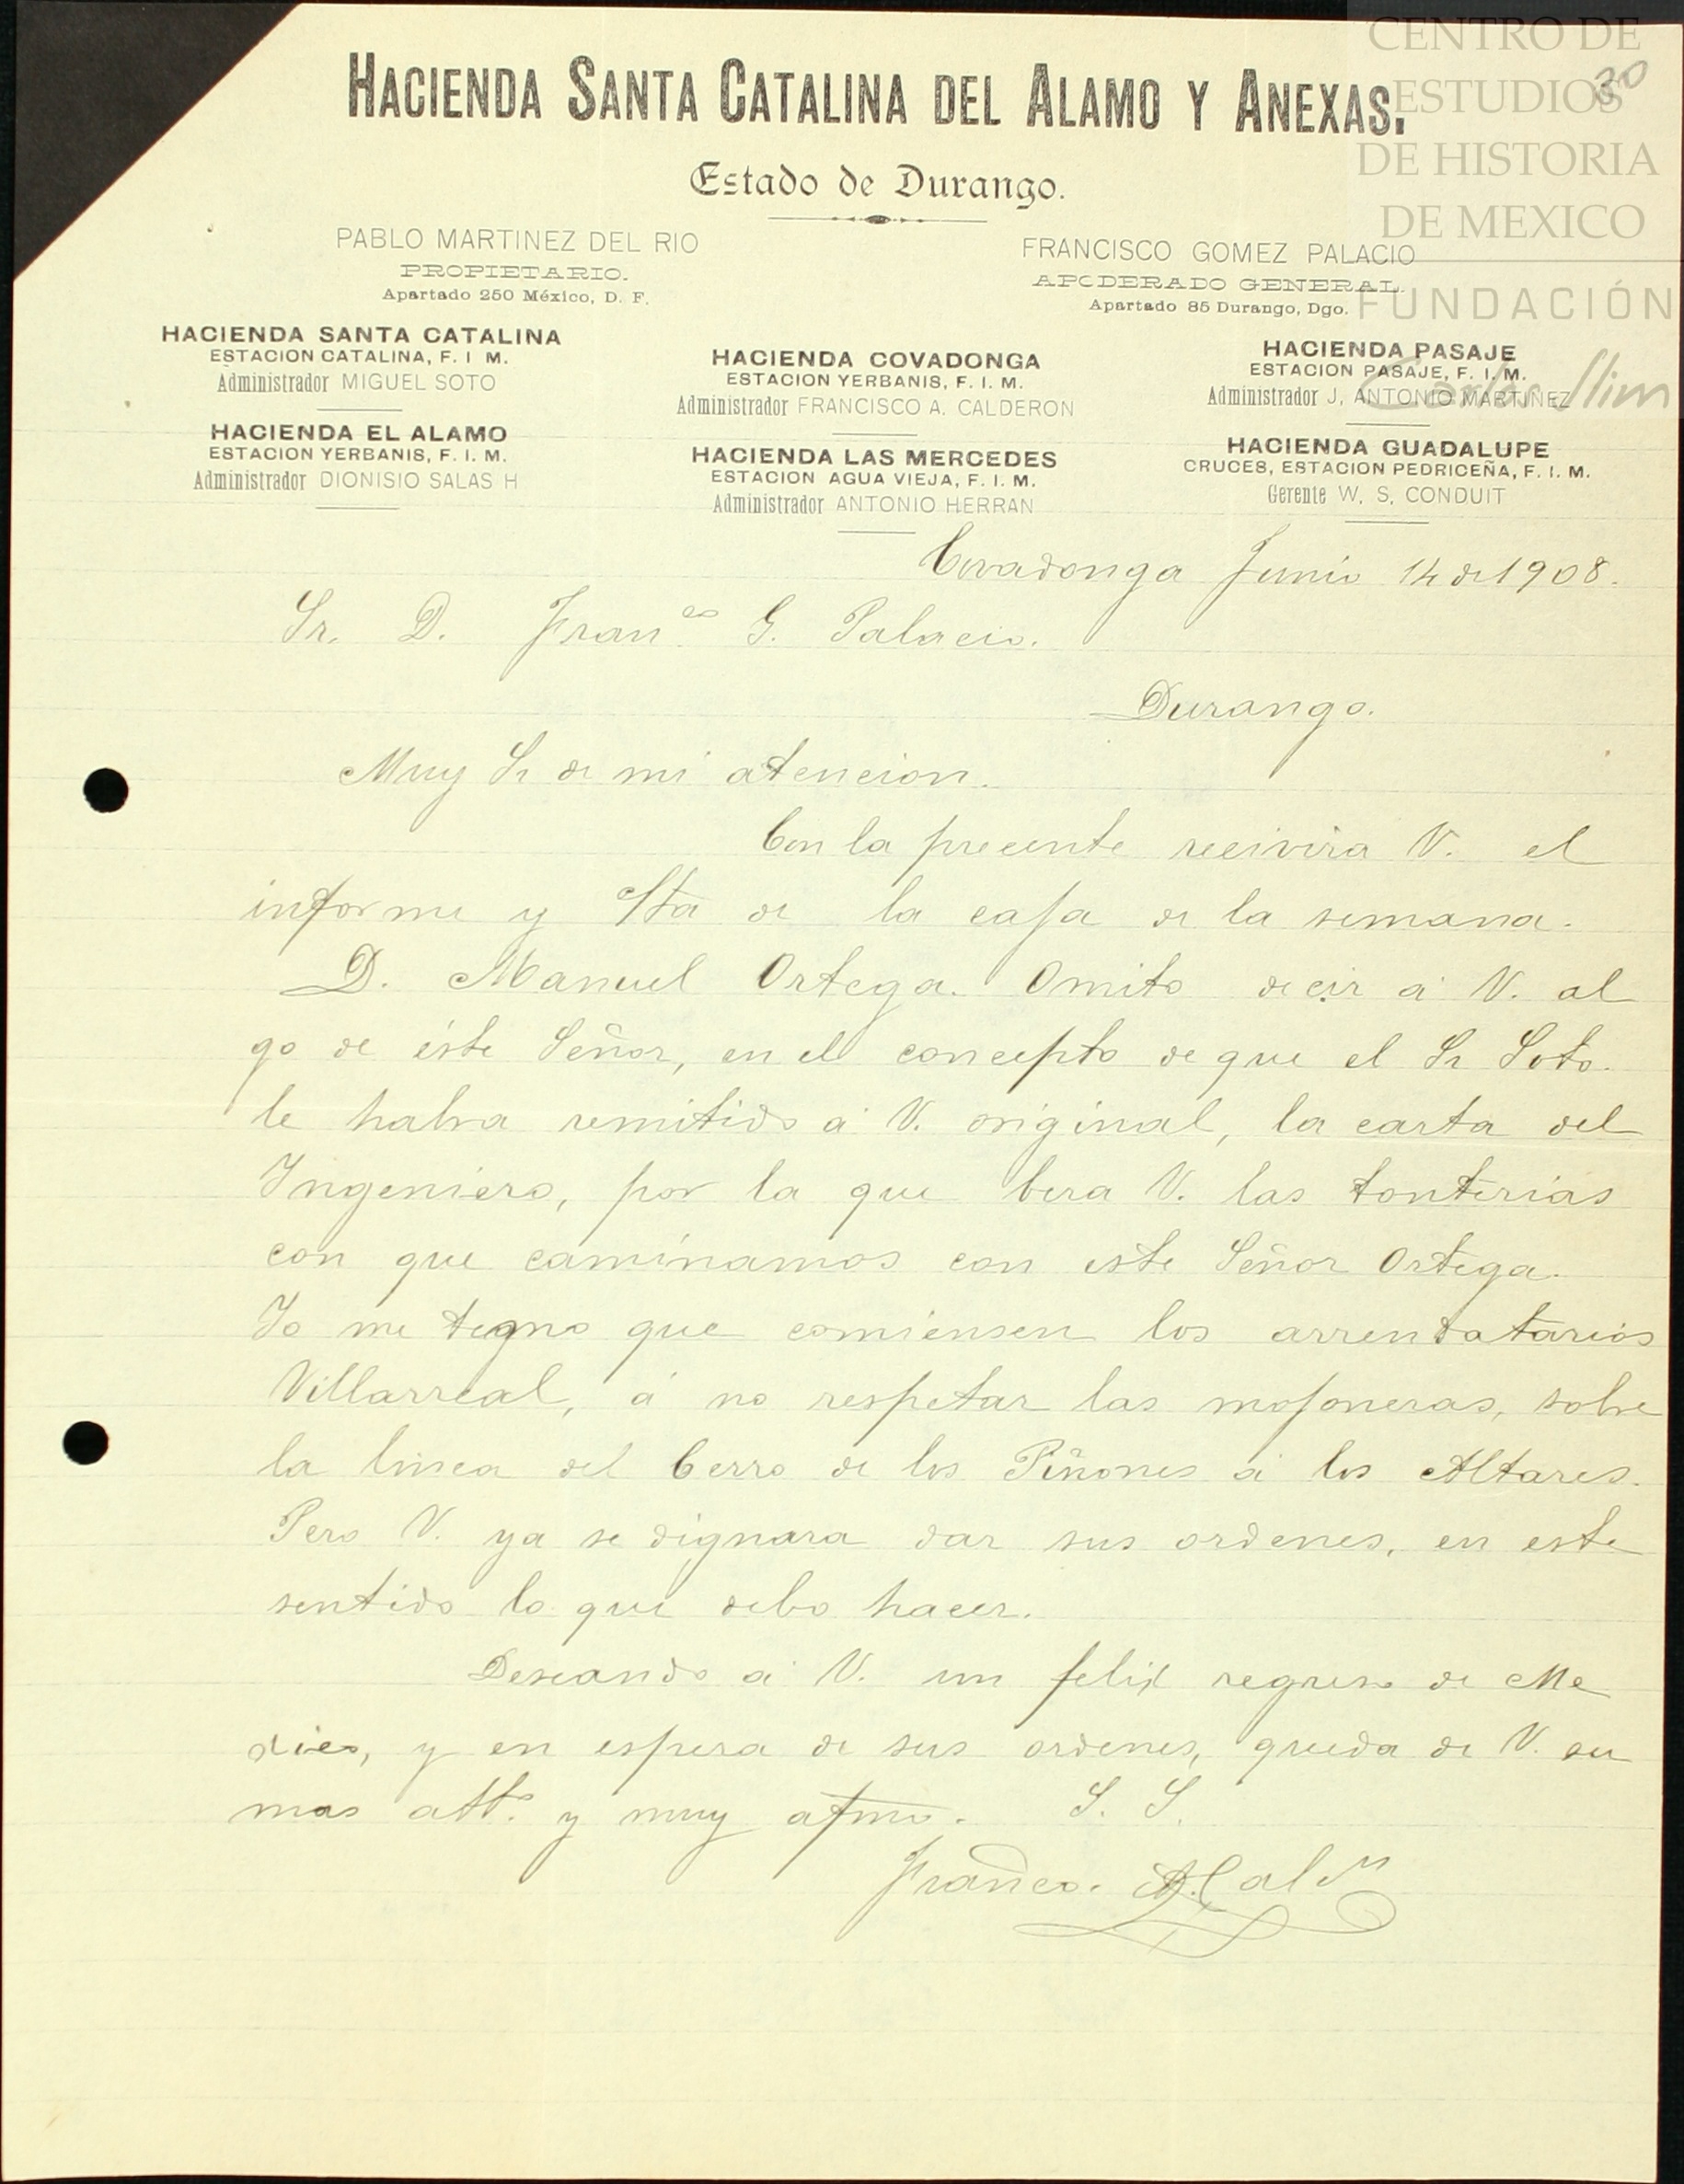 CENTRO DE
ESTUDIOS
DE HISTORIA
DE MEXICO
FUNDACIÓN
Carlos Slim
30
HACIENDA SANTA CATALINA DEL ALAMO Y ANEXAS.
Estado de Durango.
PABLO MARTINEZ DEL RIO
PROPIETARIO.
Apartado 250 México, D. F.
FRANCISCO GOMEZ PALACIO
APODERADO GENERAL.
Apartado 85 Durango, Dgo.
HACIENDA SANTA CATALINA
ESTACION CATALINA, F. I M.
Administrador MIGUEL SOTO
HACIENDA EL ALAMO
ESTACION YERBANIS, F. I. M.
Administrador DIONISIO SALAS H
HACIENDA COVADONGA
ESTACION YERBANIS, F. I. M.
Administrador FRANCISCO A. CALDERON
HACIENDA LAS MERCEDES
ESTACION AGUA VIEJA, F. I. M.
Administrador ANTONIO HERRAN
HACIENDA PASAJE
ESTACION PASAJE, F. I. M.
Administrador J. ANTONIO MARTIÑEZ
HACIENDA GUADALUPE
CRUCES, ESTACION PEDRICEÑA, F. I. M.
Gerente W. S. CONDUIT
Covadonga Junio 14 de 1908.
Sr. D. Fran.co G. Palacio.
Durango.
Muy Sr de mi atencion.
Con la precente recivira V. el
informe y de la caja de la semana.
D. Manuel Ortega. Omito decir a V. al
go de éste Señor, en el concepto de que el Sr Soto.
le habra remitido a V. original, la carta del
Ingeniero, por la que bera V. las tonterias
con que caminamos con este Señor Ortega.
Yo me tegno que comiensen los arrendatarios
Villarreal, á no respetar las mojoneras, sobre
la linea del Cerro de los Piñones a los Altares.
Pero V. ya se dignara dar sus ordenes, en este
sentido lo que debo hacer.
Deseando a V. un felix regreso de Me
jico, y en espera de sus ordenes, queda de V. su
mas att.o y muy afmo. S. S.
Franco. A. Cal.n